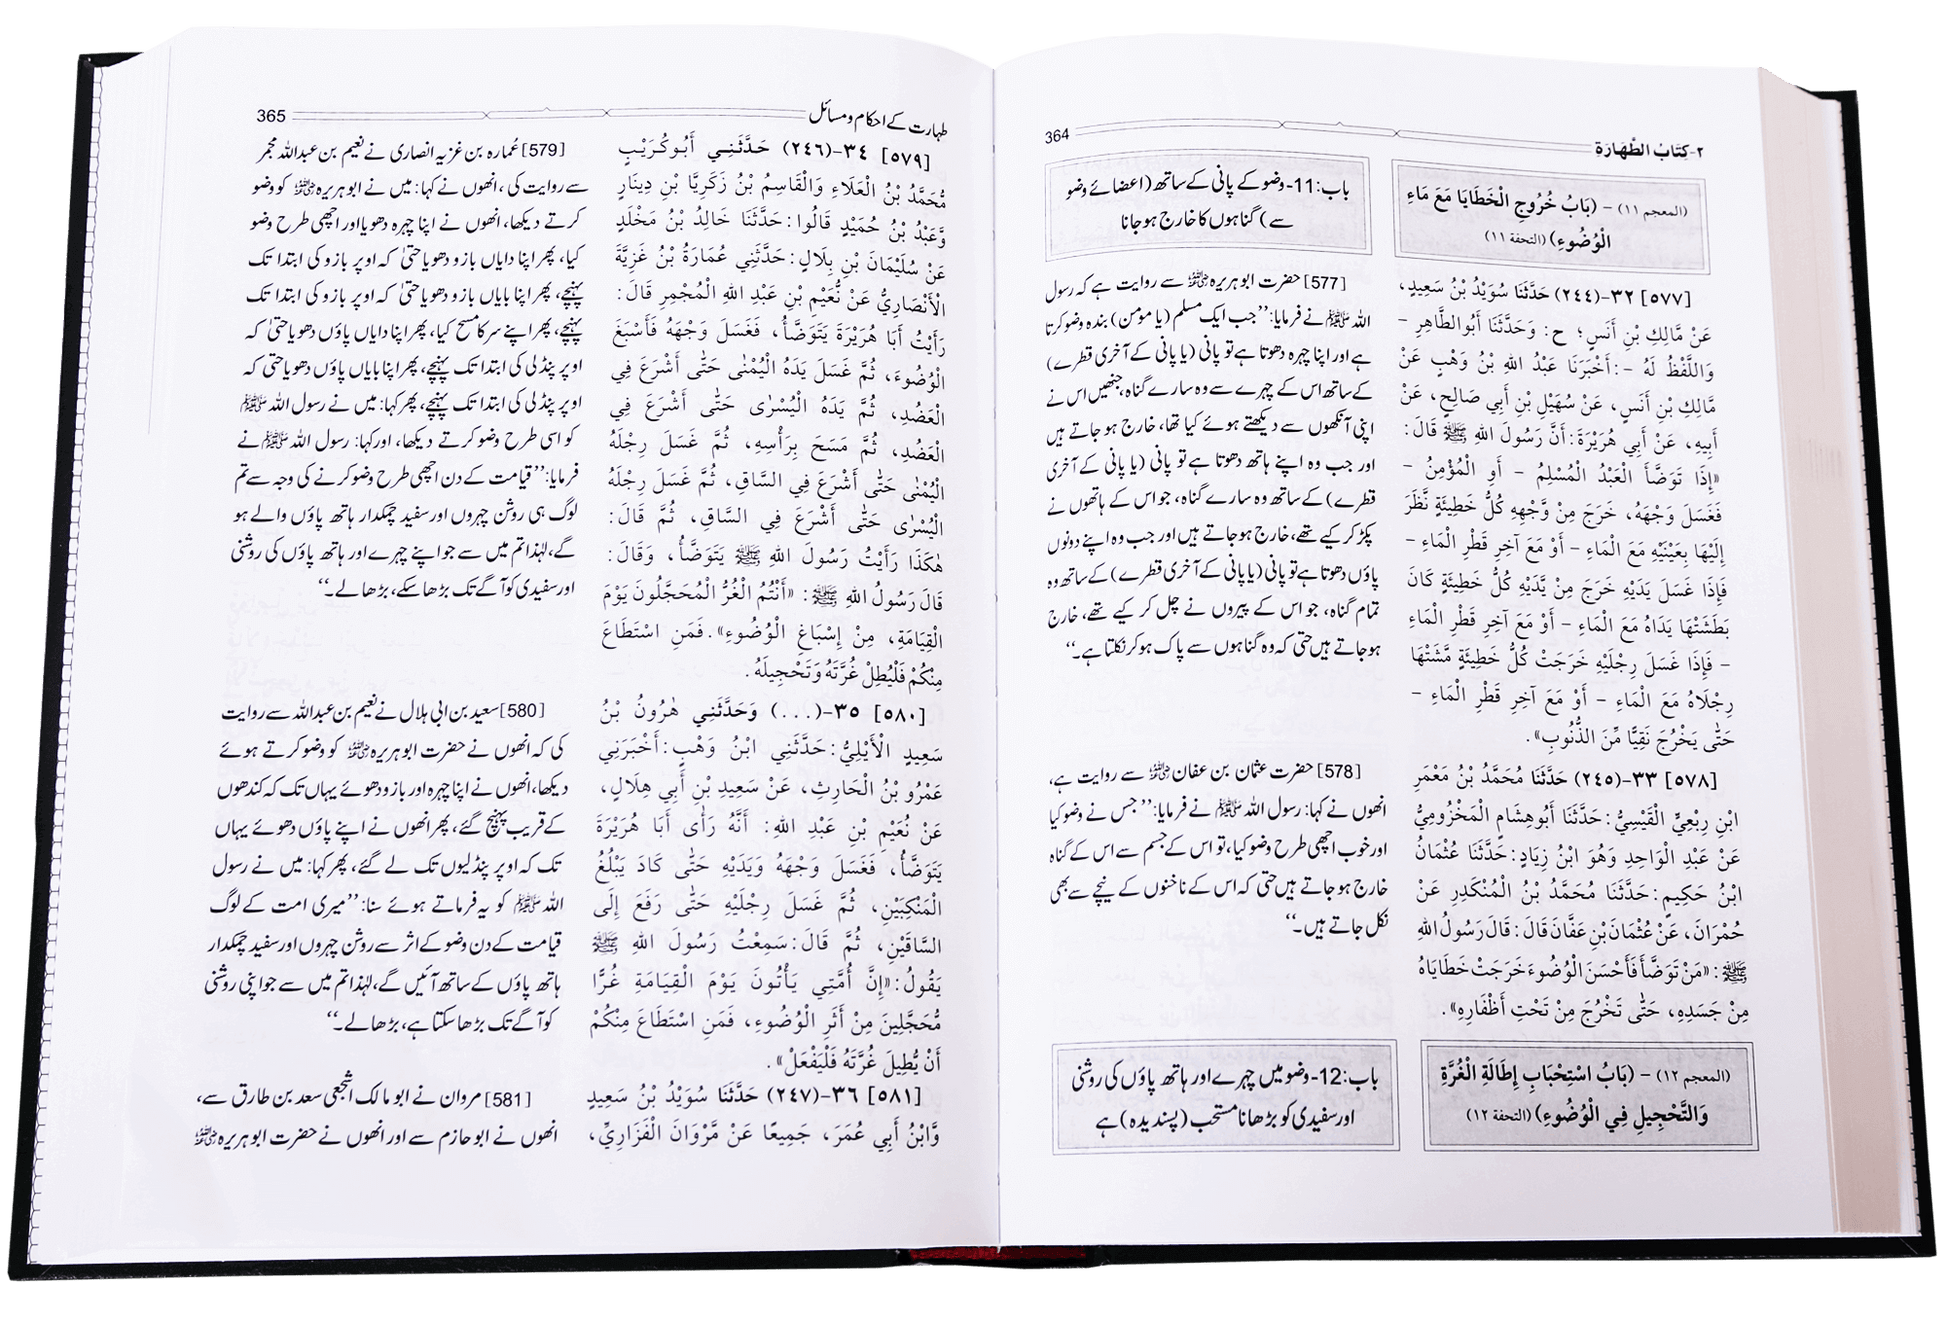 ٢-كِتَابُ الطَّهَارَةِ
364
(المعجم ١١) – (بَابُ خُرُوجِ الْخَطَايَا مَعَ مَاءِ
الْوُضُوءِ) (التحفة ١١)
[٥٧٧] ٣٢-(٢٤٤) حَدَّثَنَا سُوَيْدُ بْنُ سَعِيدٍ،
عَنْ مَالِكِ بْنِ أَنَسٍ؛ ح: وَحَدَّثَنَا أَبُوالطَّاهِرِ –
وَاللَّفْظُ لَهُ –: أَخْبَرَنَا عَبْدُ اللهِ بْنُ وَهْبٍ عَنْ
مَّالِكِ بْنِ أَنَسٍ، عَنْ سُهَيْلِ بْنِ أَبِي صَالِحٍ، عَنْ
أَبِيهِ، عَنْ أَبِي هُرَيْرَةَ: أَنَّ رَسُولَ اللهِ ﷺ قَالَ:
«إِذَا تَوَضَّأَ الْعَبْدُ الْمُسْلِمُ – أَوِ الْمُؤْمِنُ –
فَغَسَلَ وَجْهَهُ، خَرَجَ مِنْ وَّجْهِهِ كُلُّ خَطِيئَةٍ نَّظَرَ
إِلَيْهَا بِعَيْنَيْهِ مَعَ الْمَاءِ – أَوْ مَعَ آخِرِ قَطْرِ الْمَاءِ –
فَإِذَا غَسَلَ يَدَيْهِ خَرَجَ مِنْ يَّدَيْهِ كُلُّ خَطِيئَةٍ كَانَ
بَطَشَتْهَا يَدَاهُ مَعَ الْمَاءِ – أَوْ مَعَ آخِرِ قَطْرِ الْمَاءِ
– فَإِذَا غَسَلَ رِجْلَيْهِ خَرَجَتْ كُلُّ خَطِيئَةٍ مَّشَتْهَا
رِجْلَاهُ مَعَ الْمَاءِ – أَوْ مَعَ آخِرِ قَطْرِ الْمَاءِ –
حَتّٰى يَخْرُجَ نَقِيًّا مِّنَ الذُّنُوبِ».
[٥٧٨] ٣٣-(٢٤٥) حَدَّثَنَا مُحَمَّدُ بْنُ مَعْمَرِ
ابْنِ رِبْعِيٍّ الْقَيْسِيُّ: حَدَّثَنَا أَبُوهِشَامٍ الْمَخْزُومِيُّ
عَنْ عَبْدِ الْوَاحِدِ وَهُوَ ابْنُ زِيَادٍ: حَدَّثَنَا عُثْمَانُ
ابْنُ حَكِيمٍ: حَدَّثَنَا مُحَمَّدُ بْنُ الْمُنْكَدِرِ عَنْ
حُمْرَانَ، عَنْ عُثْمَانَ بْنِ عَفَّانَ قَالَ: قَالَ رَسُولُ اللهِ
ﷺ: «مَنْ تَوَضَّأَ فَأَحْسَنَ الْوُضُوءَ خَرَجَتْ خَطَايَاهُ
مِنْ جَسَدِهِ، حَتّٰى تَخْرُجَ مِنْ تَحْتِ أَظْفَارِهِ».
(المعجم ١٢) – (بَابُ اسْتِحْبَابِ إِطَالَةِ الْغُرَّةِ
وَالتَّحْجِيلِ فِي الْوُضُوءِ) (التحفة ١٢)
باب:11-وضو کے پانی کے ساتھ (اعضائے وضو
سے) گناہوں کا خارج ہو جانا
[577] حضرت ابو ہریرہ ؓ سے روایت ہے کہ رسول
اللہ ﷺ نے فرمایا: ’’جب ایک مسلم (یا مومن) بندہ وضو کرتا
ہے اور اپنا چہرہ دھوتا ہے تو پانی (یا پانی کے آخری قطرے)
کے ساتھ اس کے چہرے سے وہ سارے گناہ، جنھیں اس نے
اپنی آنکھوں سے دیکھتے ہوئے کیا تھا، خارج ہو جاتے ہیں
اور جب وہ اپنے ہاتھ دھوتا ہے تو پانی (یا پانی کے آخری
قطرے) کے ساتھ وہ سارے گناہ، جو اس کے ہاتھوں نے
پکڑ کر کیے تھے، خارج ہو جاتے ہیں اور جب وہ اپنے دونوں
پاؤں دھوتا ہے تو پانی (یا پانی کے آخری قطرے) کے ساتھ وہ
تمام گناہ، جو اس کے پیروں نے چل کر کیے تھے، خارج
ہو جاتے ہیں حتی کہ وہ گناہوں سے پاک ہو کر نکلتا ہے۔‘‘
[578] حضرت عثمان بن عفان ؓ سے روایت ہے،
انھوں نے کہا: رسول اللہ ﷺ نے فرمایا: ’’جس نے وضو کیا
اور خوب اچھی طرح وضو کیا، تو اس کے جسم سے اس کے گناہ
خارج ہو جاتے ہیں حتی کہ اس کے ناخنوں کے نیچے سے بھی
نکل جاتے ہیں۔‘‘
باب:12-وضو میں چہرے اور ہاتھ پاؤں کی روشنی
اور سفیدی کو بڑھانا مستحب (پسندیدہ) ہے
طہارت کے احکام و مسائل
365
[٥٧٩] ٣٤-(٢٤٦) حَدَّثَنِي أَبُوكُرَيْبٍ
مُّحَمَّدُ بْنُ الْعَلَاءِ وَالْقَاسِمُ بْنُ زَكَرِيَّا بْنِ دِينَارٍ
وَّعَبْدُ بْنُ حُمَيْدٍ قَالُوا: حَدَّثَنَا خَالِدُ بْنُ مَخْلَدٍ
عَنْ سُلَيْمَانَ بْنِ بِلَالٍ: حَدَّثَنِي عُمَارَةُ بْنُ غَزِيَّةَ
الْأَنْصَارِيُّ عَنْ نُّعَيْمِ بْنِ عَبْدِ اللهِ الْمُجْمِرِ قَالَ:
رَأَيْتُ أَبَا هُرَيْرَةَ يَتَوَضَّأُ، فَغَسَلَ وَجْهَهُ فَأَسْبَغَ
الْوُضُوءَ، ثُمَّ غَسَلَ يَدَهُ الْيُمْنٰى حَتّٰى أَشْرَعَ فِي
الْعَضُدِ، ثُمَّ يَدَهُ الْيُسْرٰى حَتّٰى أَشْرَعَ فِي
الْعَضُدِ، ثُمَّ مَسَحَ بِرَأْسِهِ، ثُمَّ غَسَلَ رِجْلَهُ
الْيُمْنٰى حَتّٰى أَشْرَعَ فِي السَّاقِ، ثُمَّ غَسَلَ رِجْلَهُ
الْيُسْرٰى حَتّٰى أَشْرَعَ فِي السَّاقِ، ثُمَّ قَالَ:
هٰكَذَا رَأَيْتُ رَسُولَ اللهِ ﷺ يَتَوَضَّأُ، وَقَالَ:
قَالَ رَسُولُ اللهِ ﷺ: «أَنْتُمُ الْغُرُّ الْمُحَجَّلُونَ يَوْمَ
الْقِيَامَةِ، مِنْ إِسْبَاغِ الْوُضُوءِ». فَمَنِ اسْتَطَاعَ
مِنْكُمْ فَلْيُطِلْ غُرَّتَهُ وَتَحْجِيلَهُ.
[٥٨٠] ٣٥-(...) وَحَدَّثَنِي هٰرُونُ بْنُ
سَعِيدٍ الْأَيْلِيُّ: حَدَّثَنِي ابْنُ وَهْبٍ: أَخْبَرَنِي
عَمْرُو بْنُ الْحَارِثِ، عَنْ سَعِيدِ بْنِ أَبِي هِلَالٍ،
عَنْ نُعَيْمِ بْنِ عَبْدِ اللهِ: أَنَّهُ رَأٰى أَبَا هُرَيْرَةَ
يَتَوَضَّأُ، فَغَسَلَ وَجْهَهُ وَيَدَيْهِ حَتّٰى كَادَ يَبْلُغُ
الْمَنْكِبَيْنِ، ثُمَّ غَسَلَ رِجْلَيْهِ حَتّٰى رَفَعَ إِلَى
السَّاقَيْنِ، ثُمَّ قَالَ: سَمِعْتُ رَسُولَ اللهِ ﷺ
يَقُولُ: «إِنَّ أُمَّتِي يَأْتُونَ يَوْمَ الْقِيَامَةِ غُرًّا
مُّحَجَّلِينَ مِنْ أَثَرِ الْوُضُوءِ، فَمَنِ اسْتَطَاعَ مِنْكُمْ
أَنْ يُّطِيلَ غُرَّتَهُ فَلْيَفْعَلْ».
[٥٨١] ٣٦-(٢٤٧) حَدَّثَنَا سُوَيْدُ بْنُ سَعِيدٍ
وَّابْنُ أَبِي عُمَرَ، جَمِيعًا عَنْ مَّرْوَانَ الْفَزَارِيِّ،
[579] عُمارہ بن غزیہ انصاری نے نعیم بن عبداللہ مجمر
سے روایت کی، انھوں نے کہا: میں نے ابو ہریرہ ؓ کو وضو
کرتے دیکھا، انھوں نے اپنا چہرہ دھویا اور اچھی طرح وضو
کیا، پھر اپنا دایاں بازو دھویا حتیٰ کہ اوپر بازو کی ابتدا تک
پہنچے، پھر اپنا بایاں بازو دھویا حتیٰ کہ اوپر بازو کی ابتدا تک
پہنچے، پھر اپنے سر کا مسح کیا، پھر اپنا دایاں پاؤں دھویا حتیٰ کہ
اوپر پنڈلی کی ابتدا تک پہنچے، پھر اپنا بایاں پاؤں دھویا حتی کہ
اوپر پنڈلی کی ابتدا تک پہنچے، پھر کہا: میں نے رسول اللہ ﷺ
کو اسی طرح وضو کرتے دیکھا، اور کہا: رسول اللہ ﷺ نے
فرمایا: ’’قیامت کے دن اچھی طرح وضو کرنے کی وجہ سے تم
لوگ ہی روشن چہروں اور سفید چمکدار ہاتھ پاؤں والے ہو
گے، لہٰذا تم میں سے جو اپنے چہرے اور ہاتھ پاؤں کی روشنی
اور سفیدی کو آگے تک بڑھا سکے، بڑھا لے۔‘‘
[580] سعید بن ابی ہلال نے نعیم بن عبداللہ سے روایت
کی کہ انھوں نے حضرت ابو ہریرہ ؓ کو وضو کرتے ہوئے
دیکھا، انھوں نے اپنا چہرہ اور بازو دھوئے یہاں تک کہ کندھوں
کے قریب پہنچ گئے، پھر انھوں نے اپنے پاؤں دھوئے یہاں
تک کہ اوپر پنڈلیوں تک لے گئے، پھر کہا: میں نے رسول
اللہ ﷺ کو یہ فرماتے ہوئے سنا: ’’میری امت کے لوگ
قیامت کے دن وضو کے اثر سے روشن چہروں اور سفید چمکدار
ہاتھ پاؤں کے ساتھ آئیں گے، لہٰذا تم میں سے جو اپنی روشنی
کو آگے تک بڑھا سکتا ہے، بڑھا لے۔‘‘
[581] مروان نے ابو مالک اشجعی سعد بن طارق سے،
انھوں نے ابو حازم سے اور انھوں نے حضرت ابو ہریرہ ؓ